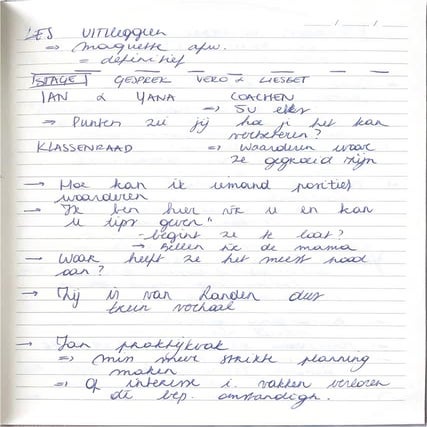 LES UITLEGGEN
=> maquette afw.
= definitief
STAGE GESPREK VERO & LIESBET
JAN & YANA COACHEN
=> SU elks
=> Punten zie jij hoe je het kan verbeteren?
KLASSENRAAD => waarderen waar ze gegroeid zijn
→ Hoe kan ik iemand positief waarderen
→ "Ik ben hier voor u en kan u tips geven"
- begint ze te laat?
→ Bellen de mama
→ Waar heeft ze het meest nood aan?
→ Zij is van Randen dus
verhaal
→ Jan praktijkvak
=> min meer strikte planning maken
=> Of interesse i. vakken verloren
de bep. omstandigh.